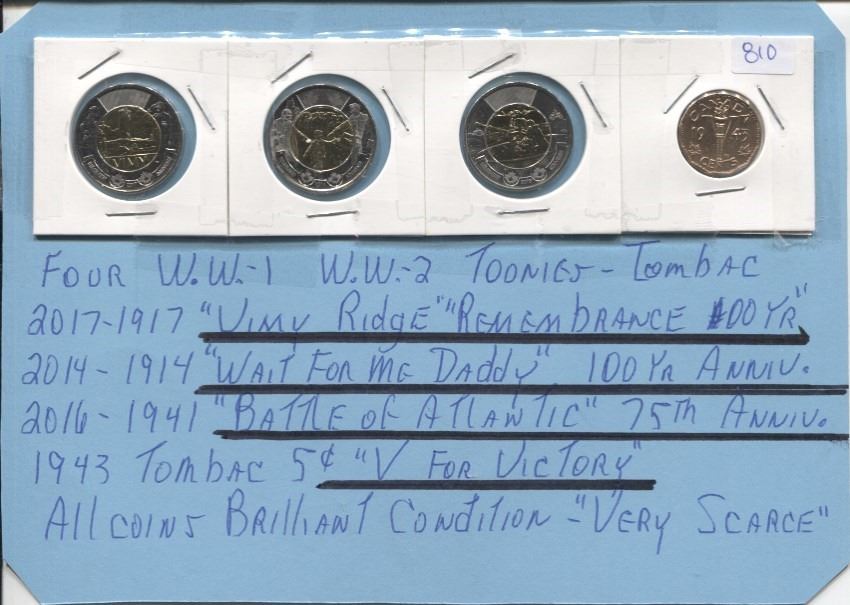 810
CANADA
1943
CENTS
FOUR W.W.-1 W.W.-2 TOONIES - TOMBAC
2017-1917 "VIMY RIDGE" "REMEMBRANCE 100 YR"
2014-1914 "WAIT FOR ME DADDY" 100 YR ANNIV.
2016-1941 "BATTLE OF ATLANTIC" 75TH ANNIV.
1943 TOMBAC 5¢ "V FOR VICTORY"
ALL COINS BRILLIANT CONDITION - "VERY SCARCE"